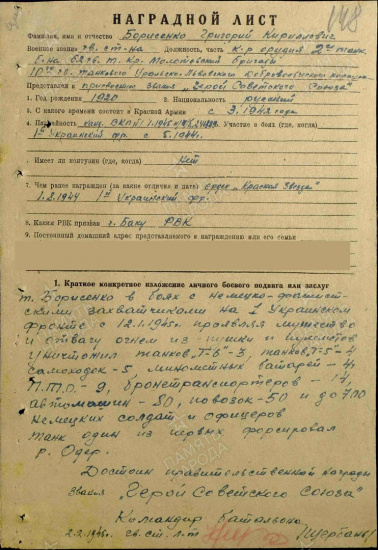 148
НАГРАДНОЙ ЛИСТ
Фамилия, имя и отчество Борисенко Григорий Кириллович
Военное звание гв. ст-на Должность, часть к-р орудия 2го танк.
б-на 62 гв. т. Кр. Молотовской бригады
10го гв. танкового Уральско-Львовского добровольческого корпуса
Представлен к присвоению звания "Герой Советского Союза"
1. Год рождения 1920 2. Национальность русский
3. С какого времени состоит в Красной Армии с 3.1942 года
4. Партийность Участие в боях (где, когда)
1й Украинский фр. с 5.1944г.
6. Имеет ли контузии (где, когда) Нет
7. Чем ранее награжден (за какие отличия и дата) орден "Красная Звезда"
1.2.1944 1й Украинский фр.
8. Каким РВК призван г. Баку РВК
9. Постоянный домашний адрес представляемого к награждению или его семьи
1. Краткое конкретное изложение личного боевого подвига или заслуг
т. Борисенко в боях с немецко-фашист-
скими захватчиками на 1 Украинском
фронте с 12.1.1945г. проявляя мужество
и отвагу огнем из пушки и пулеметов
уничтожил танков "Т-6"-3, танков "Т-5"-4
самоходок-5, минометных батарей-4,
П.Т.О.-9, бронетранспортеров-17,
автомашин-50, повозок-50 и до 700
немецких солдат и офицеров
танк один из первых форсировал
р. Одер.
Достоин правительственной награды
звания "Герой Советского Союза"
Командир батальона
2.2.1945г. гв. ст. л-т